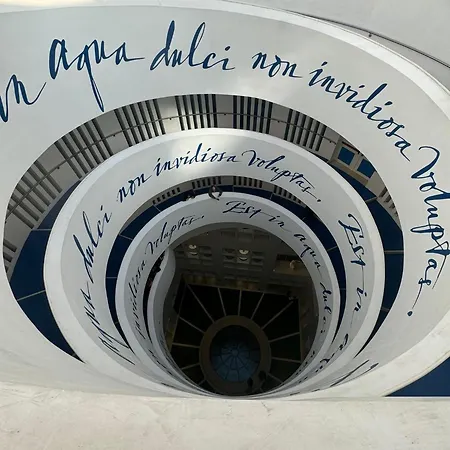 in aqua dulci non invidiosa voluptas.
aqua dulci non invidiosa voluptas. Est in
invidiosa voluptas. Est in aqua dulci